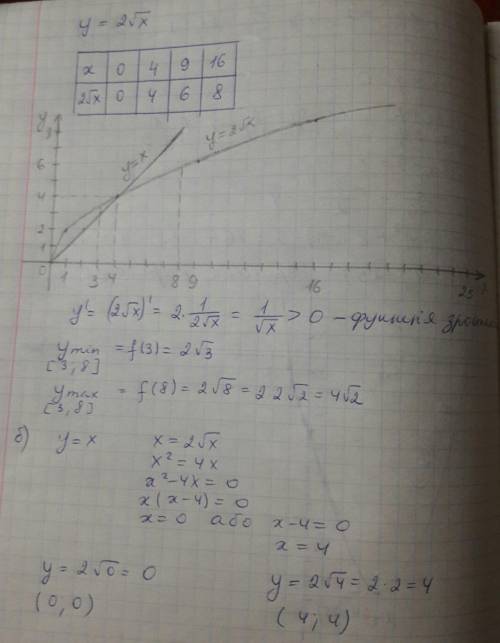 y = 2√x
x 0 4 9 16
2√x 0 4 6 8
y
8
6
4
2
1
y=x
y=2√x
0 1 3 4 8 9 16 25
y' = (2√x)' = 2·1/(2√x) = 1/√x > 0 – функція
y min [3;8] = f(3) = 2√3
y max [3,8] = f(8) = 2√8 = 2 2√2 = 4√2
б) y = x x = 2√x
x² = 4x
x² - 4x = 0
x(x-4) = 0
x = 0 або x-4 = 0
x = 4
y = 2√0 = 0 y = 2√4 = 2·2 = 4
(0; 0) (4; 4)